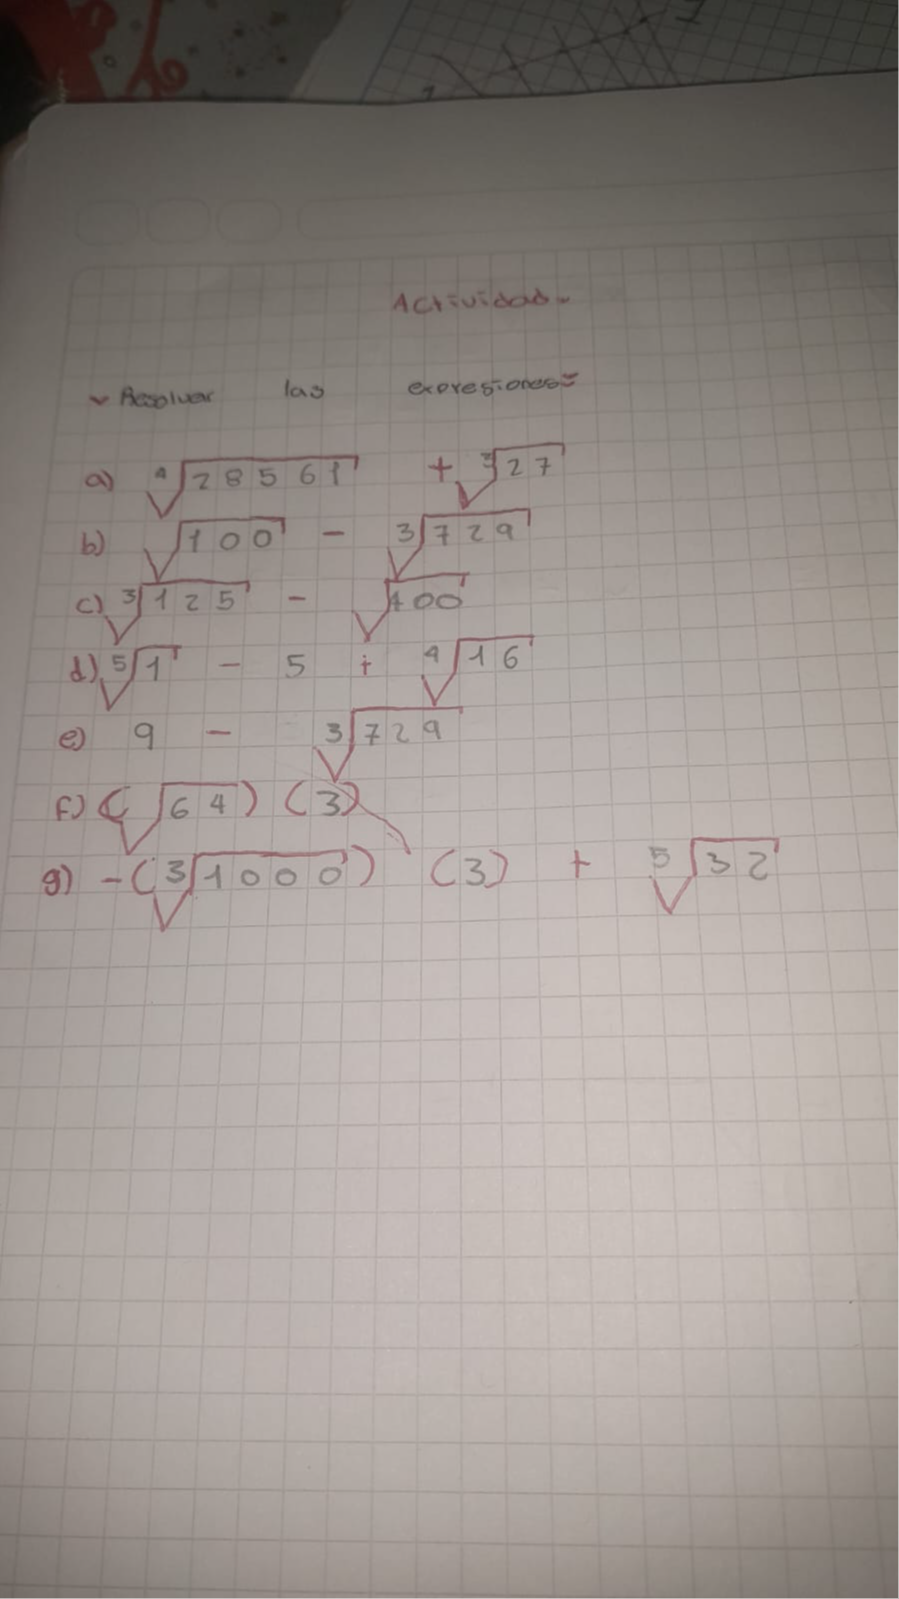 Actividad
Resolver las expresiones
a) ⁴√28561 + ³√27
b) √100 - ³√729
c) ³√125 - √100
d) ⁵√1 - 5 + ⁴√16
e) 9 - ³√729
f) (√64) (3)
g) -(³√1000) (3) + ⁵√32